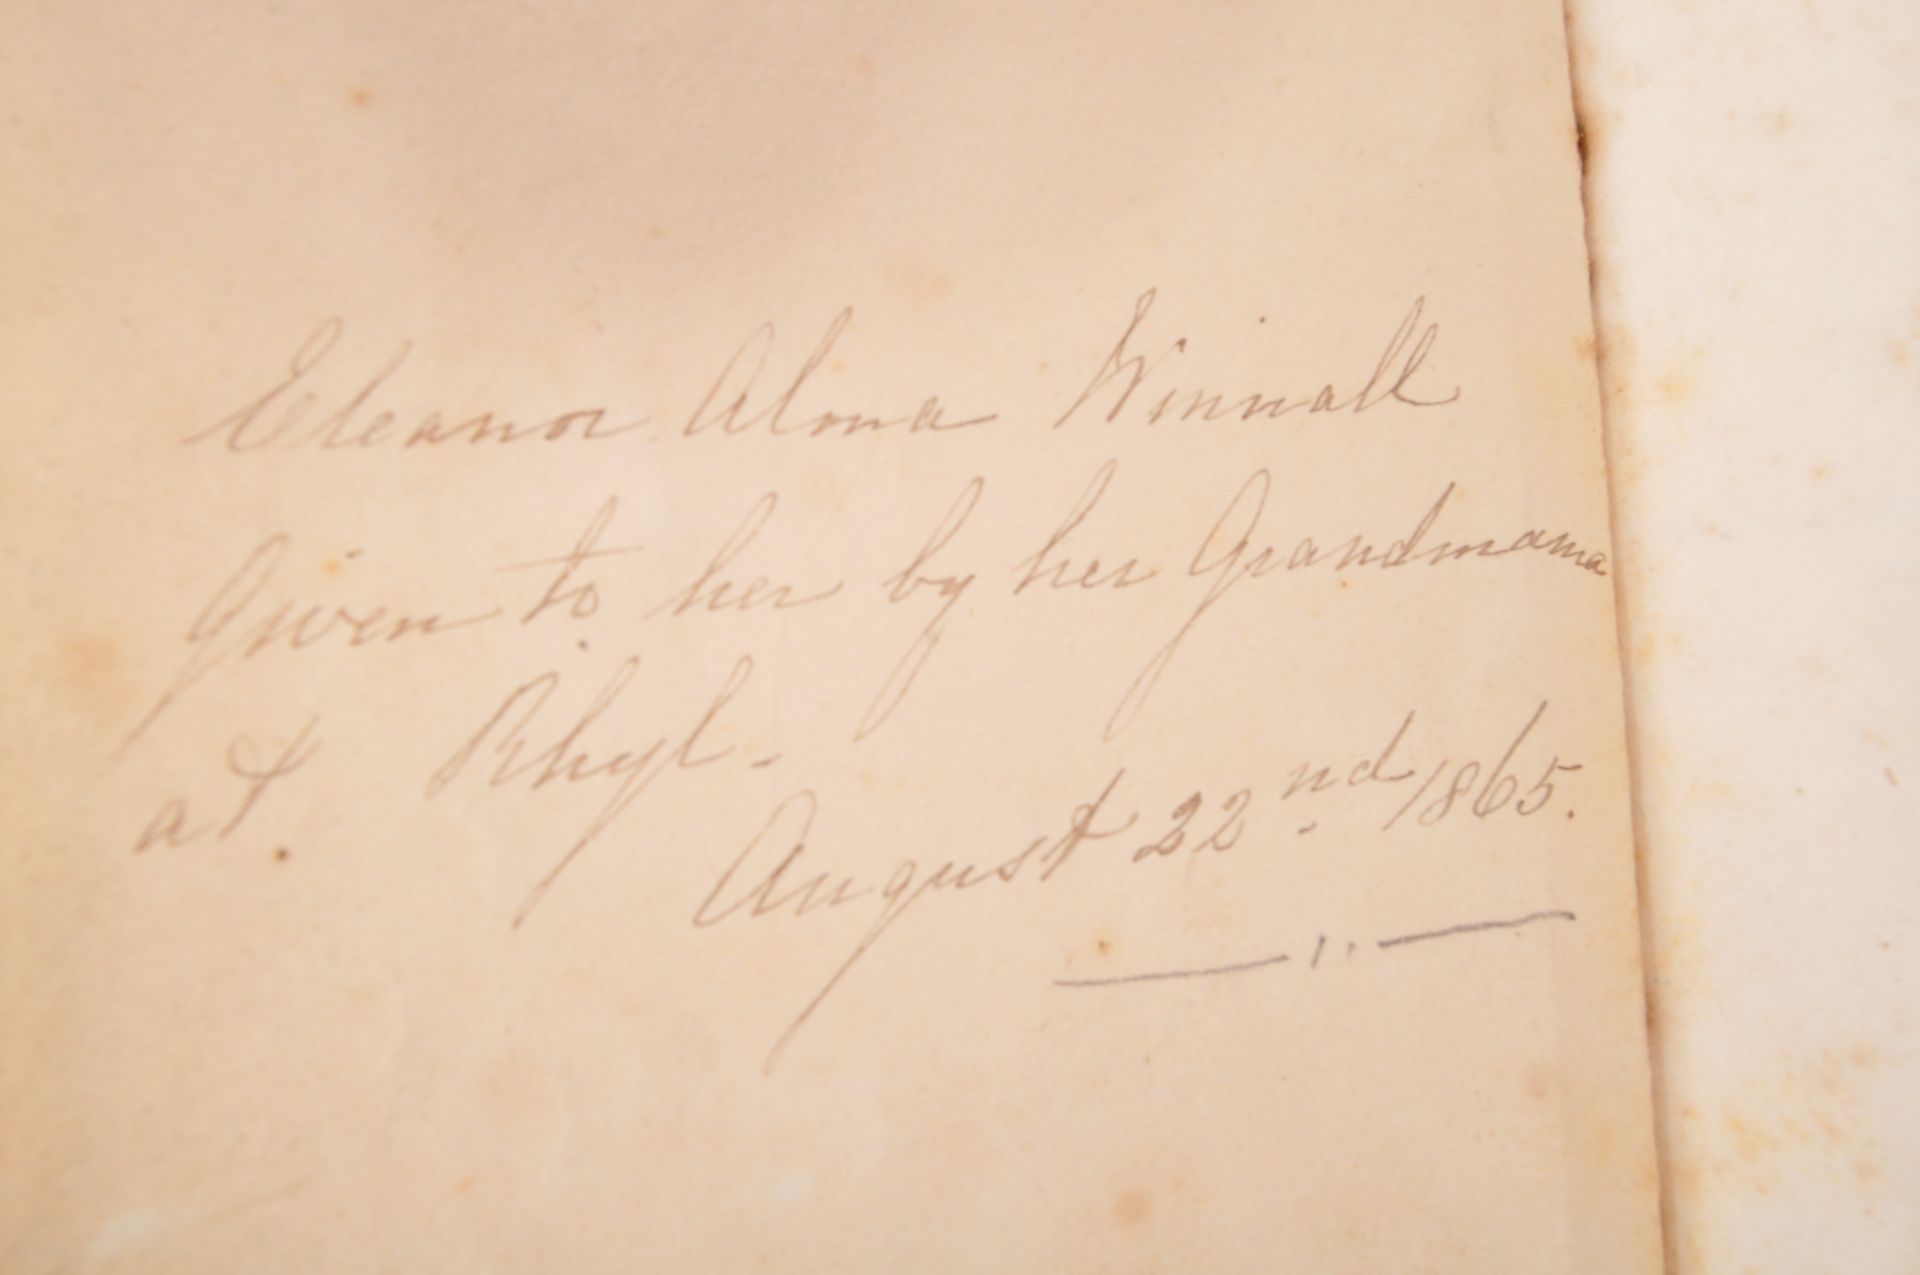 Eleanor Alma Winnall
Given to her by her Grandmama
at Rhyl -
August 22nd 1865.